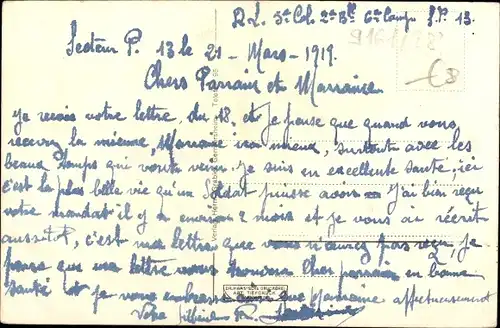 R.L. 5e Col. 2e Bll 6e Comp S.P. 13.
Secteur P. 13 le 21 - Mars - 1919.
Chers Parrain et Marraine.
je reçois votre lettre, du 18, et je pense que quand vous
recevrez la mienne, Marraine ira mieux, surtout avec les
beaux temps qui vont venir. je suis en excellente santé, ici
c'est la plus belle vie qu'un Soldat puisse avoir - j'ai bien reçu
votre mandat il y a environ 2 mois et je vous ai récrit
aussitot, c'est ma lettre que vous n'aurez pas reçu, je
pense que ma lettre vous trouvera Cher parrain en bonne
santé et je vous embrasse que Marraine affectueusement
Votre